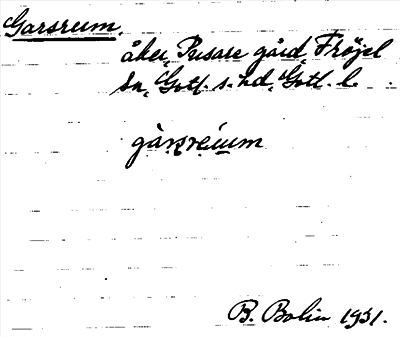 Garsreum.
åker, Pusare gård, Fröjel
sn, Gotl. s. hd, Gotl. l.
gàrsréum
B. Bolin 1931.